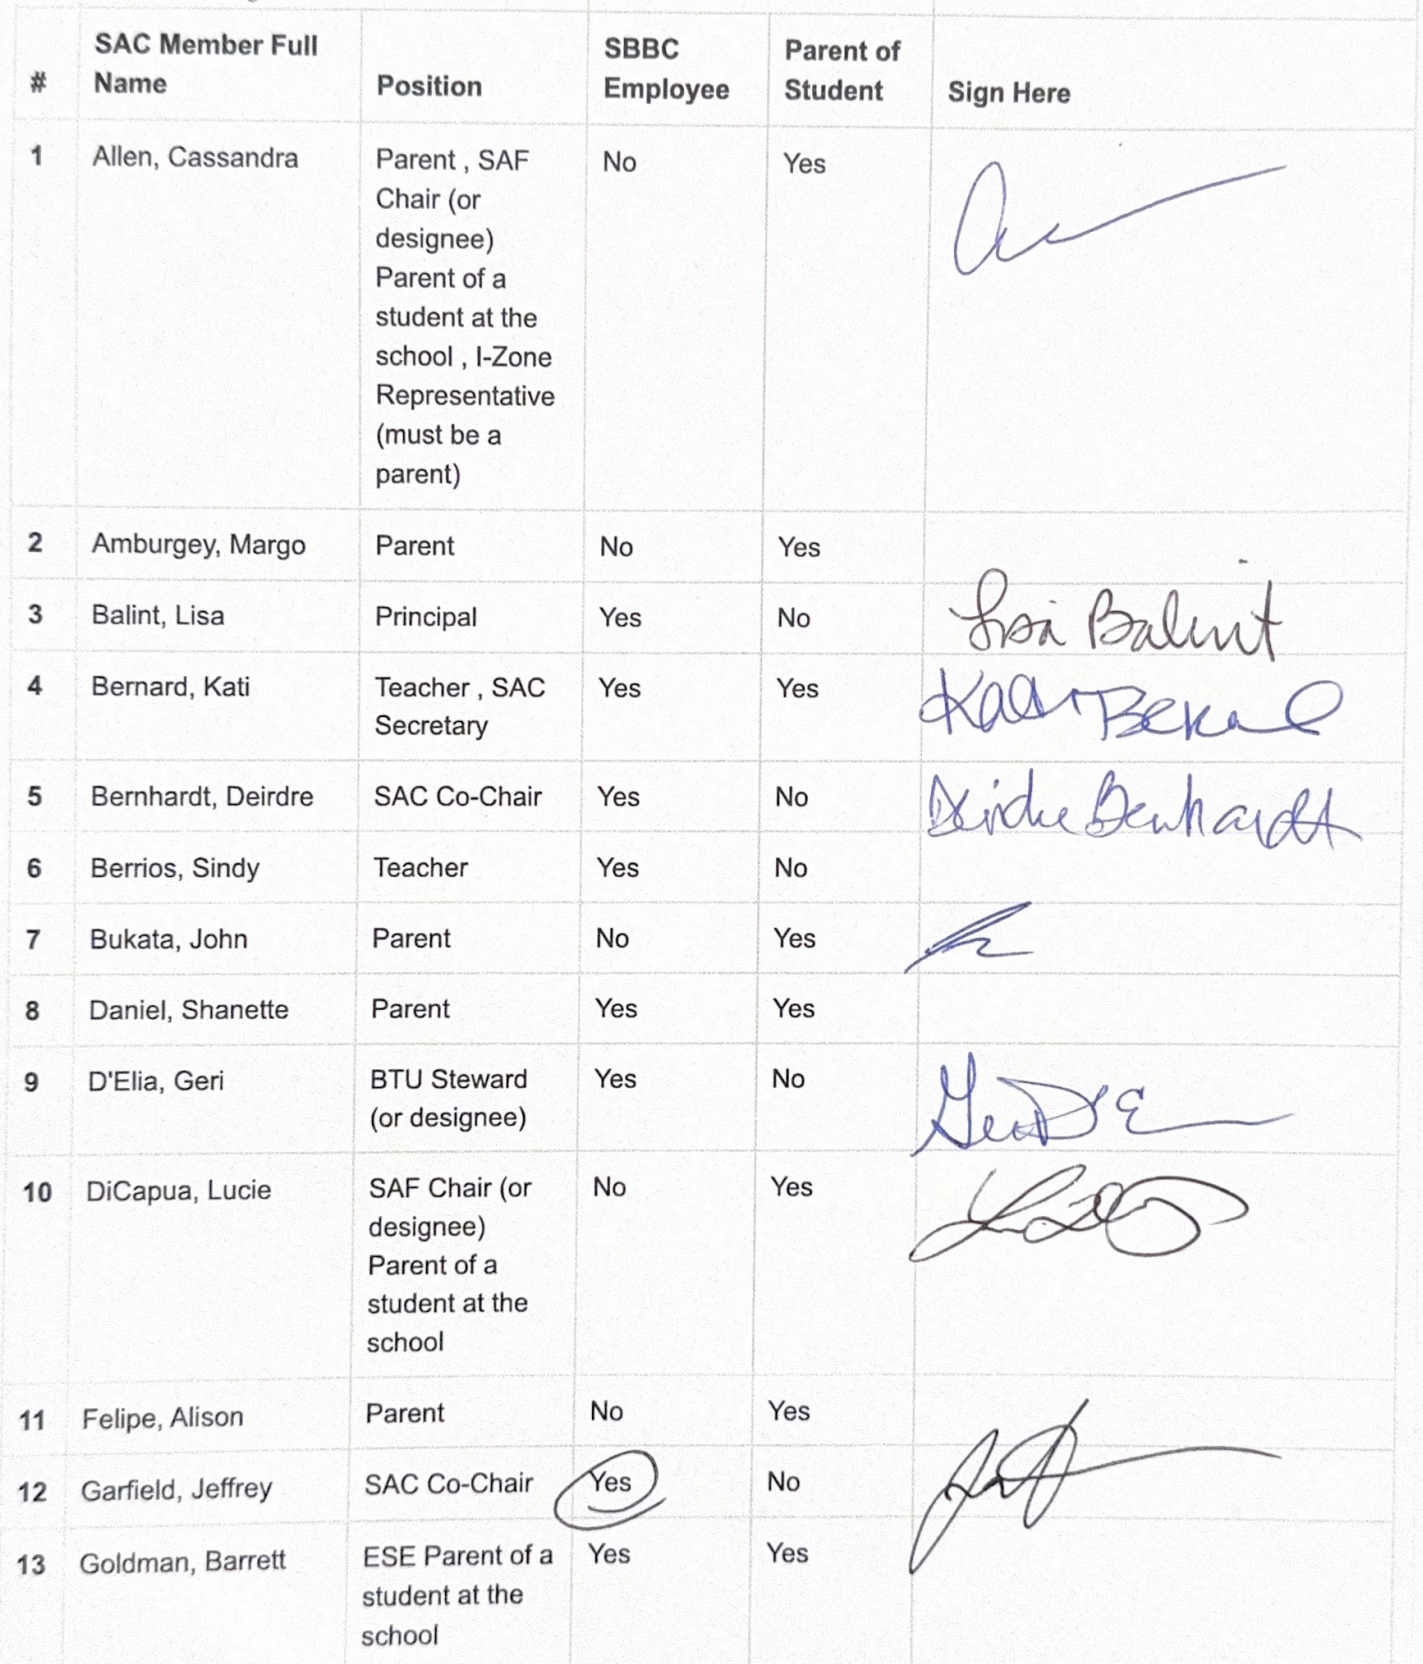 # SAC Member Full Name Position SBBC Employee Parent of Student Sign Here
1 Allen, Cassandra Parent , SAF No Yes
Chair (or
designee)
Parent of a
student at the
school , I-Zone
Representative
(must be a
parent)
2 Amburgey, Margo Parent No Yes
3 Balint, Lisa Principal Yes No Lisa Balint
4 Bernard, Kati Teacher , SAC Yes Yes
Secretary
5 Bernhardt, Deirdre SAC Co-Chair Yes No Deirdre Bernhardt
6 Berrios, Sindy Teacher Yes No
7 Bukata, John Parent No Yes
8 Daniel, Shanette Parent Yes Yes
9 D'Elia, Geri BTU Steward Yes No
(or designee)
10 DiCapua, Lucie SAF Chair (or No Yes
designee)
Parent of a
student at the
school
11 Felipe, Alison Parent No Yes
12 Garfield, Jeffrey SAC Co-Chair Yes No
13 Goldman, Barrett ESE Parent of a Yes Yes
student at the
school